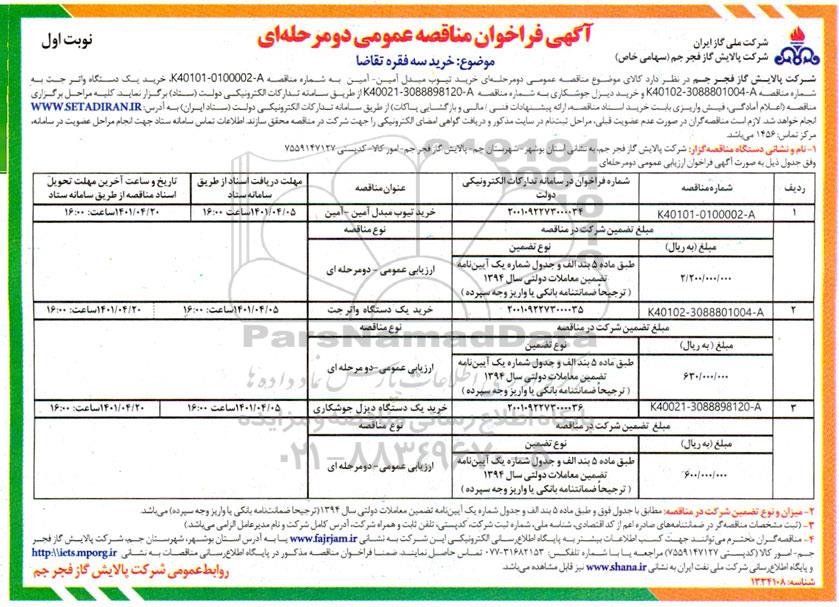 شرکت ملی گاز ایران
شرکت پالایش گاز فجر جم (سهامی خاص)
آگهی فراخوان مناقصه عمومی دو مرحله‌ای
موضوع: خرید سه فقره تقاضا
نوبت اول
شرکت پالایش گاز فجر جم در نظر دارد کالای موضوع مناقصه عمومی دومرحله‌ای خرید تیوب مبدل آمین- آمین به شماره مناقصه K40101-0100002-A، خرید یک دستگاه واتر جت به
شماره مناقصه K40102-3088801004-A و خرید دیزل جوشکاری به شماره مناقصه K40021-3088898120-A از طریق سامانه تدارکات الکترونیکی دولت (ستاد) برگزار نماید. کلیه مراحل برگزاری
مناقصه (اعلام آمادگی، فیش واریزی بابت خرید اسناد مناقصه، ارائه پیشنهادات فنی / مالی و بازگشایی پاکات) از طریق سامانه تدارکات الکترونیکی دولت (ستاد ایران) به آدرس: WWW.SETADIRAN.IR
انجام خواهد شد. لازم است مناقصه‌گران در صورت عدم عضویت قبلی، مراحل ثبت‌نام در سایت مذکور و دریافت گواهی امضای الکترونیکی را جهت شرکت در مناقصه محقق سازند. اطلاعات تماس سامانه ستاد جهت انجام مراحل عضویت در سامانه،
مرکز تماس: ۱۴۵۶ می‌باشد.
۱- نام و نشانی دستگاه مناقصه‌گزار: شرکت پالایش گاز فجر جم، به نشانی استان بوشهر- شهرستان جم- پالایش گاز فجر جم- امور کالا- کدپستی ۷۵۵۹۱۴۷۱۲۷
وفق جدول ذیل به صورت آگهی فراخوان ارزیابی عمومی دومرحله‌ای
ردیف شماره مناقصه شماره فراخوان در سامانه تدارکات الکترونیکی دولت عنوان مناقصه مهلت دریافت اسناد از طریق سامانه ستاد تاریخ و ساعت آخرین مهلت تحویل اسناد مناقصه از طریق سامانه ستاد
۱ K40101-0100002-A ۲۰۰۱۰۹۲۲۷۳۰۰۰۰۳۴ خرید تیوب مبدل آمین - آمین ۱۴۰۱/۰۴/۰۵ساعت: ۱۶:۰۰ ۱۴۰۱/۰۴/۲۰ساعت: ۱۶:۰۰
مبلغ تضمین شرکت در مناقصه نوع مناقصه
مبلغ (به ریال) نوع تضمین
۲/۲۰۰/۰۰۰/۰۰۰ طبق ماده ۵ بند الف و جدول شماره یک آیین‌نامه ارزیابی عمومی - دومرحله ای
تضمین معاملات دولتی سال ۱۳۹۴
( ترجیحاً ضمانتنامه بانکی یا واریز وجه سپرده )
۲ K40102-3088801004-A ۲۰۰۱۰۹۲۲۷۳۰۰۰۰۳۵ خرید یک دستگاه واتر جت ۱۴۰۱/۰۴/۰۵ساعت: ۱۶:۰۰ ۱۴۰۱/۰۴/۲۰ساعت: ۱۶:۰۰
مبلغ تضمین شرکت در مناقصه نوع مناقصه
مبلغ (به ریال) نوع تضمین
۶۳۰/۰۰۰/۰۰۰ طبق ماده ۵ بند الف و جدول شماره یک آیین‌نامه ارزیابی عمومی-دومرحله ای
تضمین معاملات دولتی سال ۱۳۹۴
( ترجیحاً ضمانتنامه بانکی یا واریز وجه سپرده )
۳ K40021-3088898120-A ۲۰۰۱۰۹۲۲۷۳۰۰۰۰۳۶ خرید یک دستگاه دیزل جوشکاری ۱۴۰۱/۰۴/۰۵ساعت: ۱۶:۰۰ ۱۴۰۱/۰۴/۲۰ساعت: ۱۶:۰۰
مبلغ تضمین شرکت در مناقصه نوع مناقصه
مبلغ (به ریال) نوع تضمین
۶۰۰/۰۰۰/۰۰۰ طبق ماده ۵ بند الف و جدول شماره یک آیین‌نامه ارزیابی عمومی-دومرحله ای
تضمین معاملات دولتی سال ۱۳۹۴
( ترجیحاً ضمانتنامه بانکی یا واریز وجه سپرده )
ParsNamadData
۰۲۱-۸۸۳۴۹۶۷۰-۵
۲- میزان و نوع تضمین شرکت در مناقصه: مطابق با جدول فوق و طبق ماده ۵ بند الف و جدول شماره یک آیین‌نامه تضمین معاملات دولتی سال ۱۳۹۴(ترجیحاً ضمانتنامه بانکی یا واریز وجه سپرده) می‌باشد.
۳- (ثبت مشخصات مناقصه‌گر در ضمانتنامه‌های صادره اعم از کد اقتصادی، شناسه ملی، شماره ثبت شرکت، کدپستی، تلفن ثابت و همراه شرکت، آدرس کامل شرکت و نام مدیرعامل الزامی می‌باشد.)
۴- مناقصه‌گران محترم می‌توانند جهت کسب اطلاعات بیشتر به پایگاه اطلاع‌رسانی الکترونیکی این شرکت به نشانی www.fajrjam.ir یا به آدرس استان بوشهر، شهرستان جم، شرکت پالایش گاز فجر
جم- امور کالا (کدپستی ۷۵۵۹۱۴۷۱۲۷) مراجعه یا با شماره تلفکس: ۳۱۶۸۲۱۵۳-۰۷۷ تماس حاصل نمایند. ضمناً فراخوان مناقصه مذکور در پایگاه اطلاع‌رسانی مناقصات به نشانی http:\\iets.mporg.ir
و پایگاه اطلاع‌رسانی شرکت ملی نفت ایران به نشانی www.shana.ir نیز قابل مشاهده می‌باشد.
شناسه: ۱۳۳۴۱۰۸
روابط عمومی شرکت پالایش گاز فجر جم